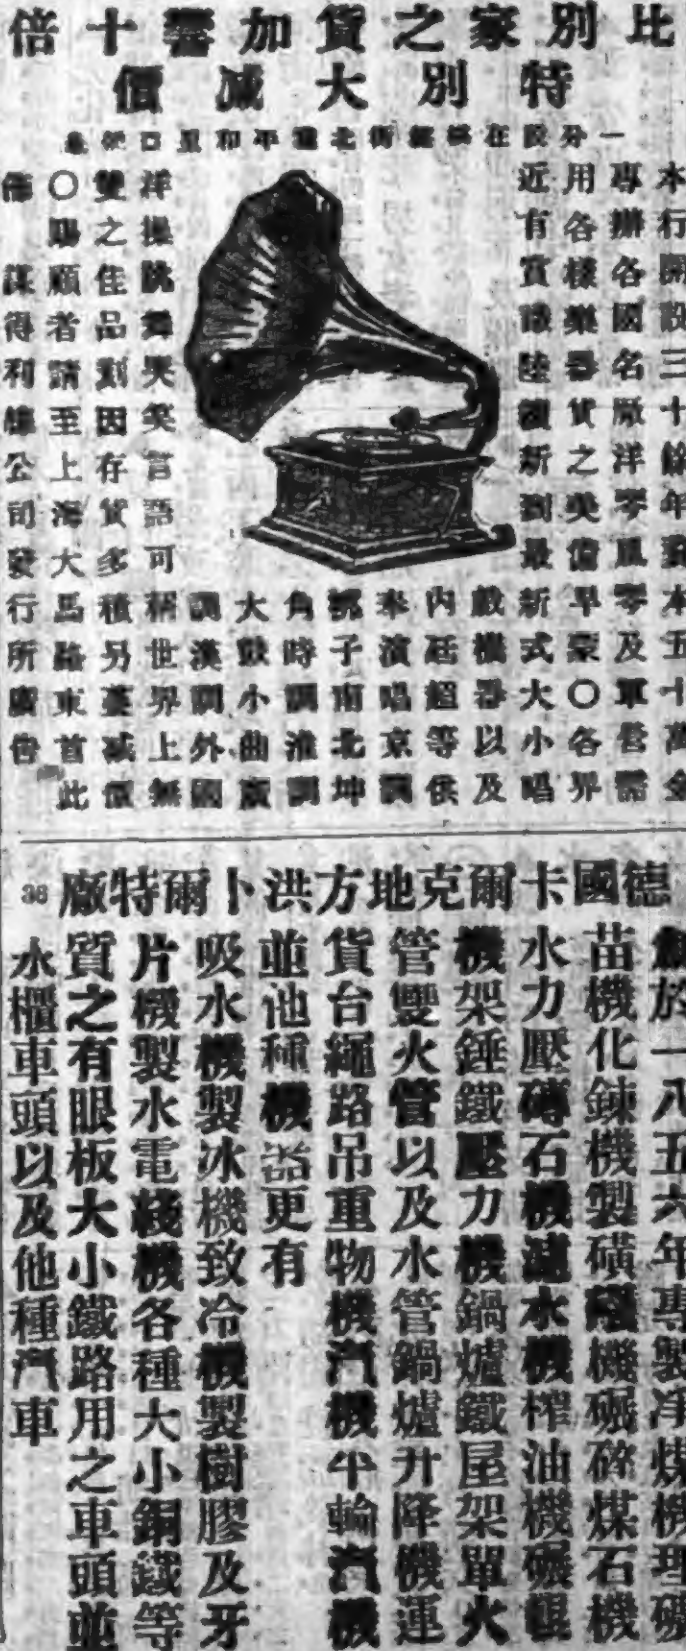 比別家之貨加響十倍
特別大減價
一分設在街北平和里口便是
本行開設三十餘年資本五十萬金
專辦各國名廠洋琴風琴及軍營需
用各樣樂器貨之美價早蒙〇各界
近有賞識陸續新到最新式大小唱
戲機器以及
內廷超等供
奉演唱京調
梆子南北坤
角時調淮調
大鼓小曲廣
調漢調外國
洋操跳舞哭笑言語可稱世界上無
雙之佳品刻因存貨多積另躉減價
〇賜顧者請至上海大馬路東首此
佈 謀得利總公司發行所廣告
德國卡爾克地方洪卜爾特廠 36
創於一八五六年專製淨煤機理礦
苗機化鍊機製磺機碾碎煤石機
水力壓磚石機濾水機榨油機碾輥
機架錘鐵壓力機鍋爐鐵屋架單火
管雙火管以及水管鍋爐升降機運
貨台繩路吊重物機汽機半輪汽機
並他種機器更有
吸水機製冰機致冷機製樹膠及牙
片機製水電機各種大小銅鐵等
質之有眼板大小鐵路用之車頭並
水櫃車頭以及他種汽車